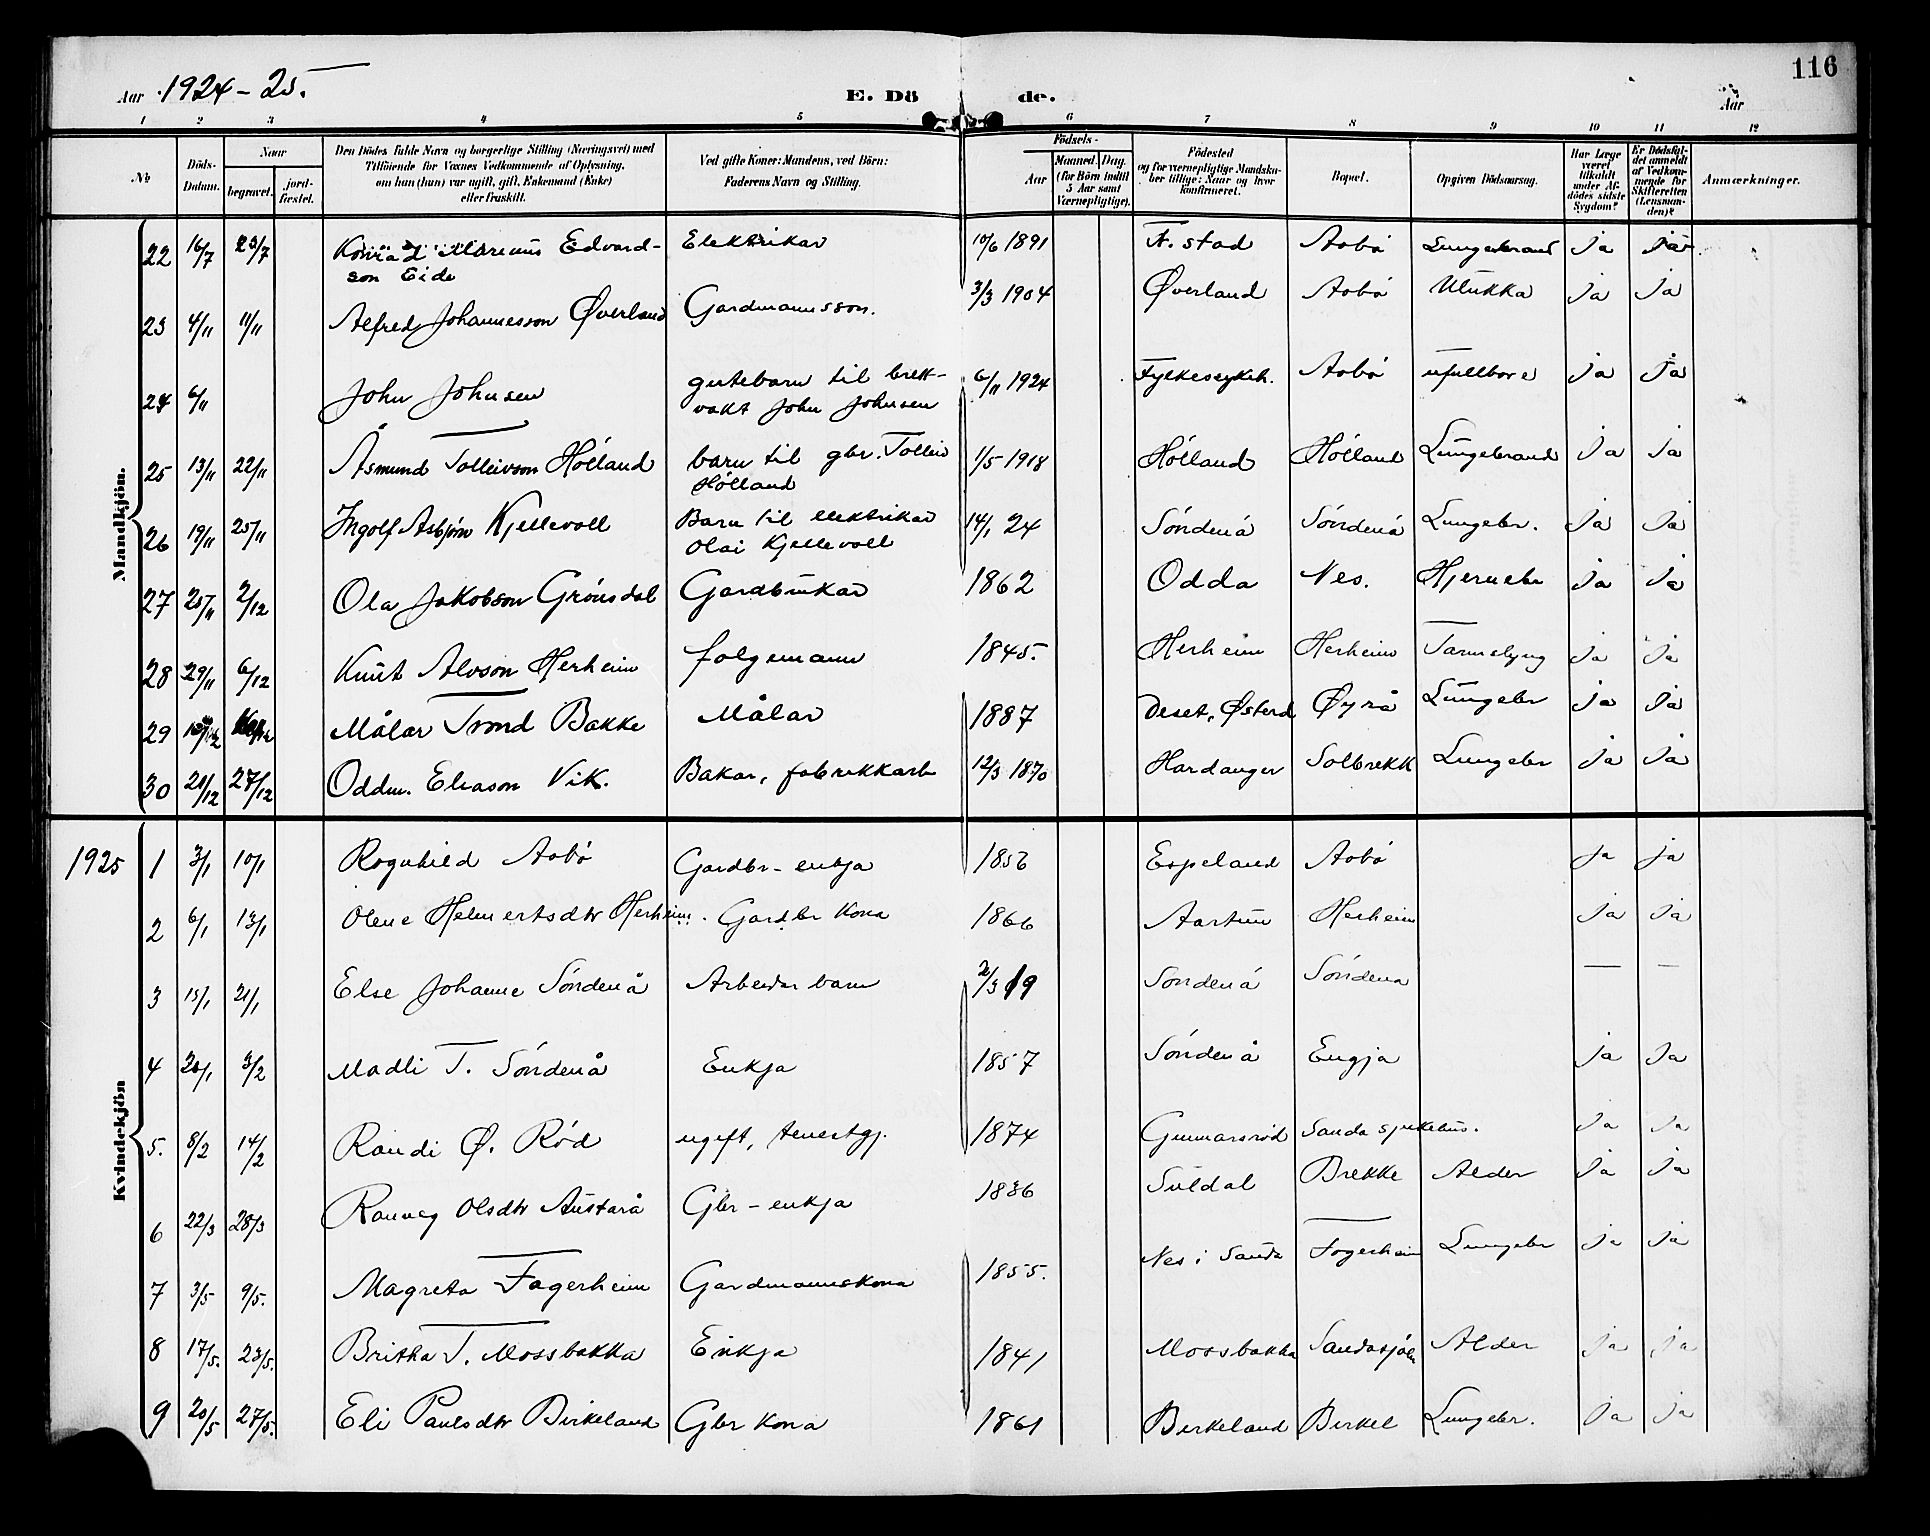 116
Aar 1924-25.
E. Dö de.
Aar
1 2 3 4 5 6 7 8 9 10 11 12
No
Döds-Datum.
Naar
begravet.
jord-fæstet.
Den Dödes fulde Navn og borgerlige Stilling (Næringsvei) med Tilföiende for Voxnes Vedkommende af Oplysning, om han (hun) var ugift, gift, Enkemand (Enke) eller fraskilt.
Ved gifte Koner: Mandens, ved Börn: Faderens Navn og Stilling.
Födsels-
Aar
Maaned. Dag.
(for Börn indtil 5 Aar samt Værnepligtige).
Födested og for værnepligtige Mandskaber tillige: Naar og hvor konfirmeret.
Bopæl.
Opgiven Dödsaarsag.
Har Læge været tilkaldt under Afdödes sidste Sygdom?
Er Dödsfaldet anmeldt af Vedkommende for Skifteretten (Lensmanden)?
Anmærkninger.
Mandkjön.
22 16/7 23/7 Konrad Marenus Edvardson Eide Elektrikar 10/6 1891 F. stad Aabö Lungebrand Ja Ja
23 4/11 11/11 Alfred Johannesson Øverland Gardmannsson. 3/3 1904 Øverland Aabö Ulukka Ja Ja
24 6/11 John Johnsen gutebarn til brekvakt John Johnsen 6/11 1924 Fylkessykeh. Aabö ufullbore Ja Ja
25 13/11 22/11 Åsmund Tolleivson Hölland barn til gbr. Tolleiv Hölland 1/5 1918 Hölland Hölland Lungebrand Ja Ja
26 19/11 25/11 Ingolf Asbjörn Kjellevoll Barn til elektrikar Olai Kjellevoll 14/1 24 Söndenå Söndenå Lungebr. Ja Ja
27 25/11 2/12 Ola Jakobson Grönsdal Gardbrukar 1862 Odda Nes. Hjernebr Ja Ja
28 29/11 6/12 Knut Alvson Herheim folgemann 1845. Herheim Herheim Tarmslyng Ja Ja
29 Målar Trond Bakke Målar 1887 Deset, Østerd Øyrå Lungebr Ja Ja
30 21/12 27/12 Oddm. Eliason Vik. Bakar, fabrikkarb 12/3 1870 Hardanger Solbrekk Lungebr Ja Ja
1925
Kvindekjön
1 3/1 10/1 Ragnhild Aabö Gardbr-enkja 1856 Espeland Aabö ja ja
2 6/1 13/1 Olene Helmertsdtr Herheim. Gardbr Kona 1866 Aartun Herheim Ja Ja
3 15/1 21/1 Else Johanne Söndenå Arbeidar barn 2/3 19 Söndenå Söndena — —
4 20/1 3/2 Madli T. Söndenå Enkja 1857 Söndenå Engja Ja Ja
5. 8/2 14/2 Randi Ø. Röd ugift, tenestgj. 1874 Gunnarsröd Sanda sjukehus. Ja Ja
6 22/3 28/3 Ranveg Olsdtr Austarå Gbr-enkja 1836 Suldal Brekke Alder Ja Ja
7 3/5 9/5. Magreta Fagerheim Gardmannskona 1855. Nes i Sanda Fagerheim Lungebr Ja Ja
8 17/5. 23/5. Britha T. Mossbakka Enkja 1841 Mossbakka Sandasjöen Alder Ja Ja
9 20/5 27/5. Eli Paulsdtr Birkeland Gbr Kona 1861 Birkeland Birkel Lungebr. Ja Ja